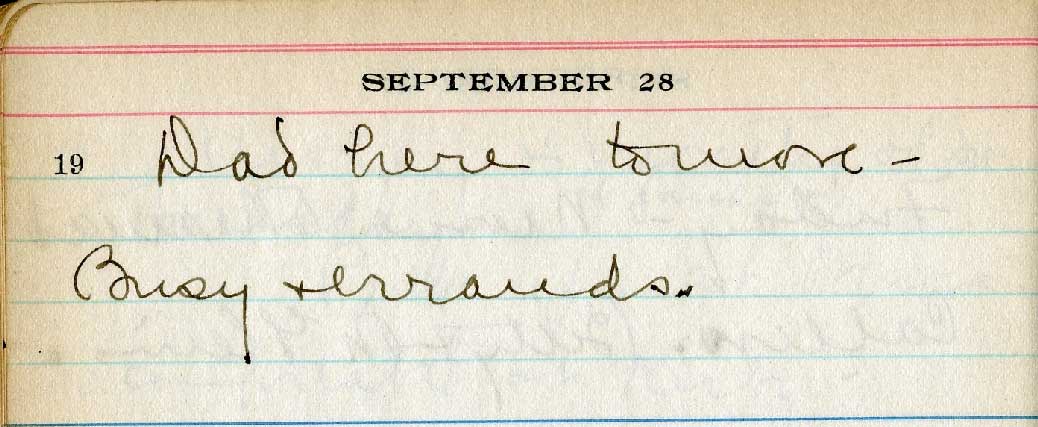 SEPTEMBER 28
19 Dad here
Busy + errands.